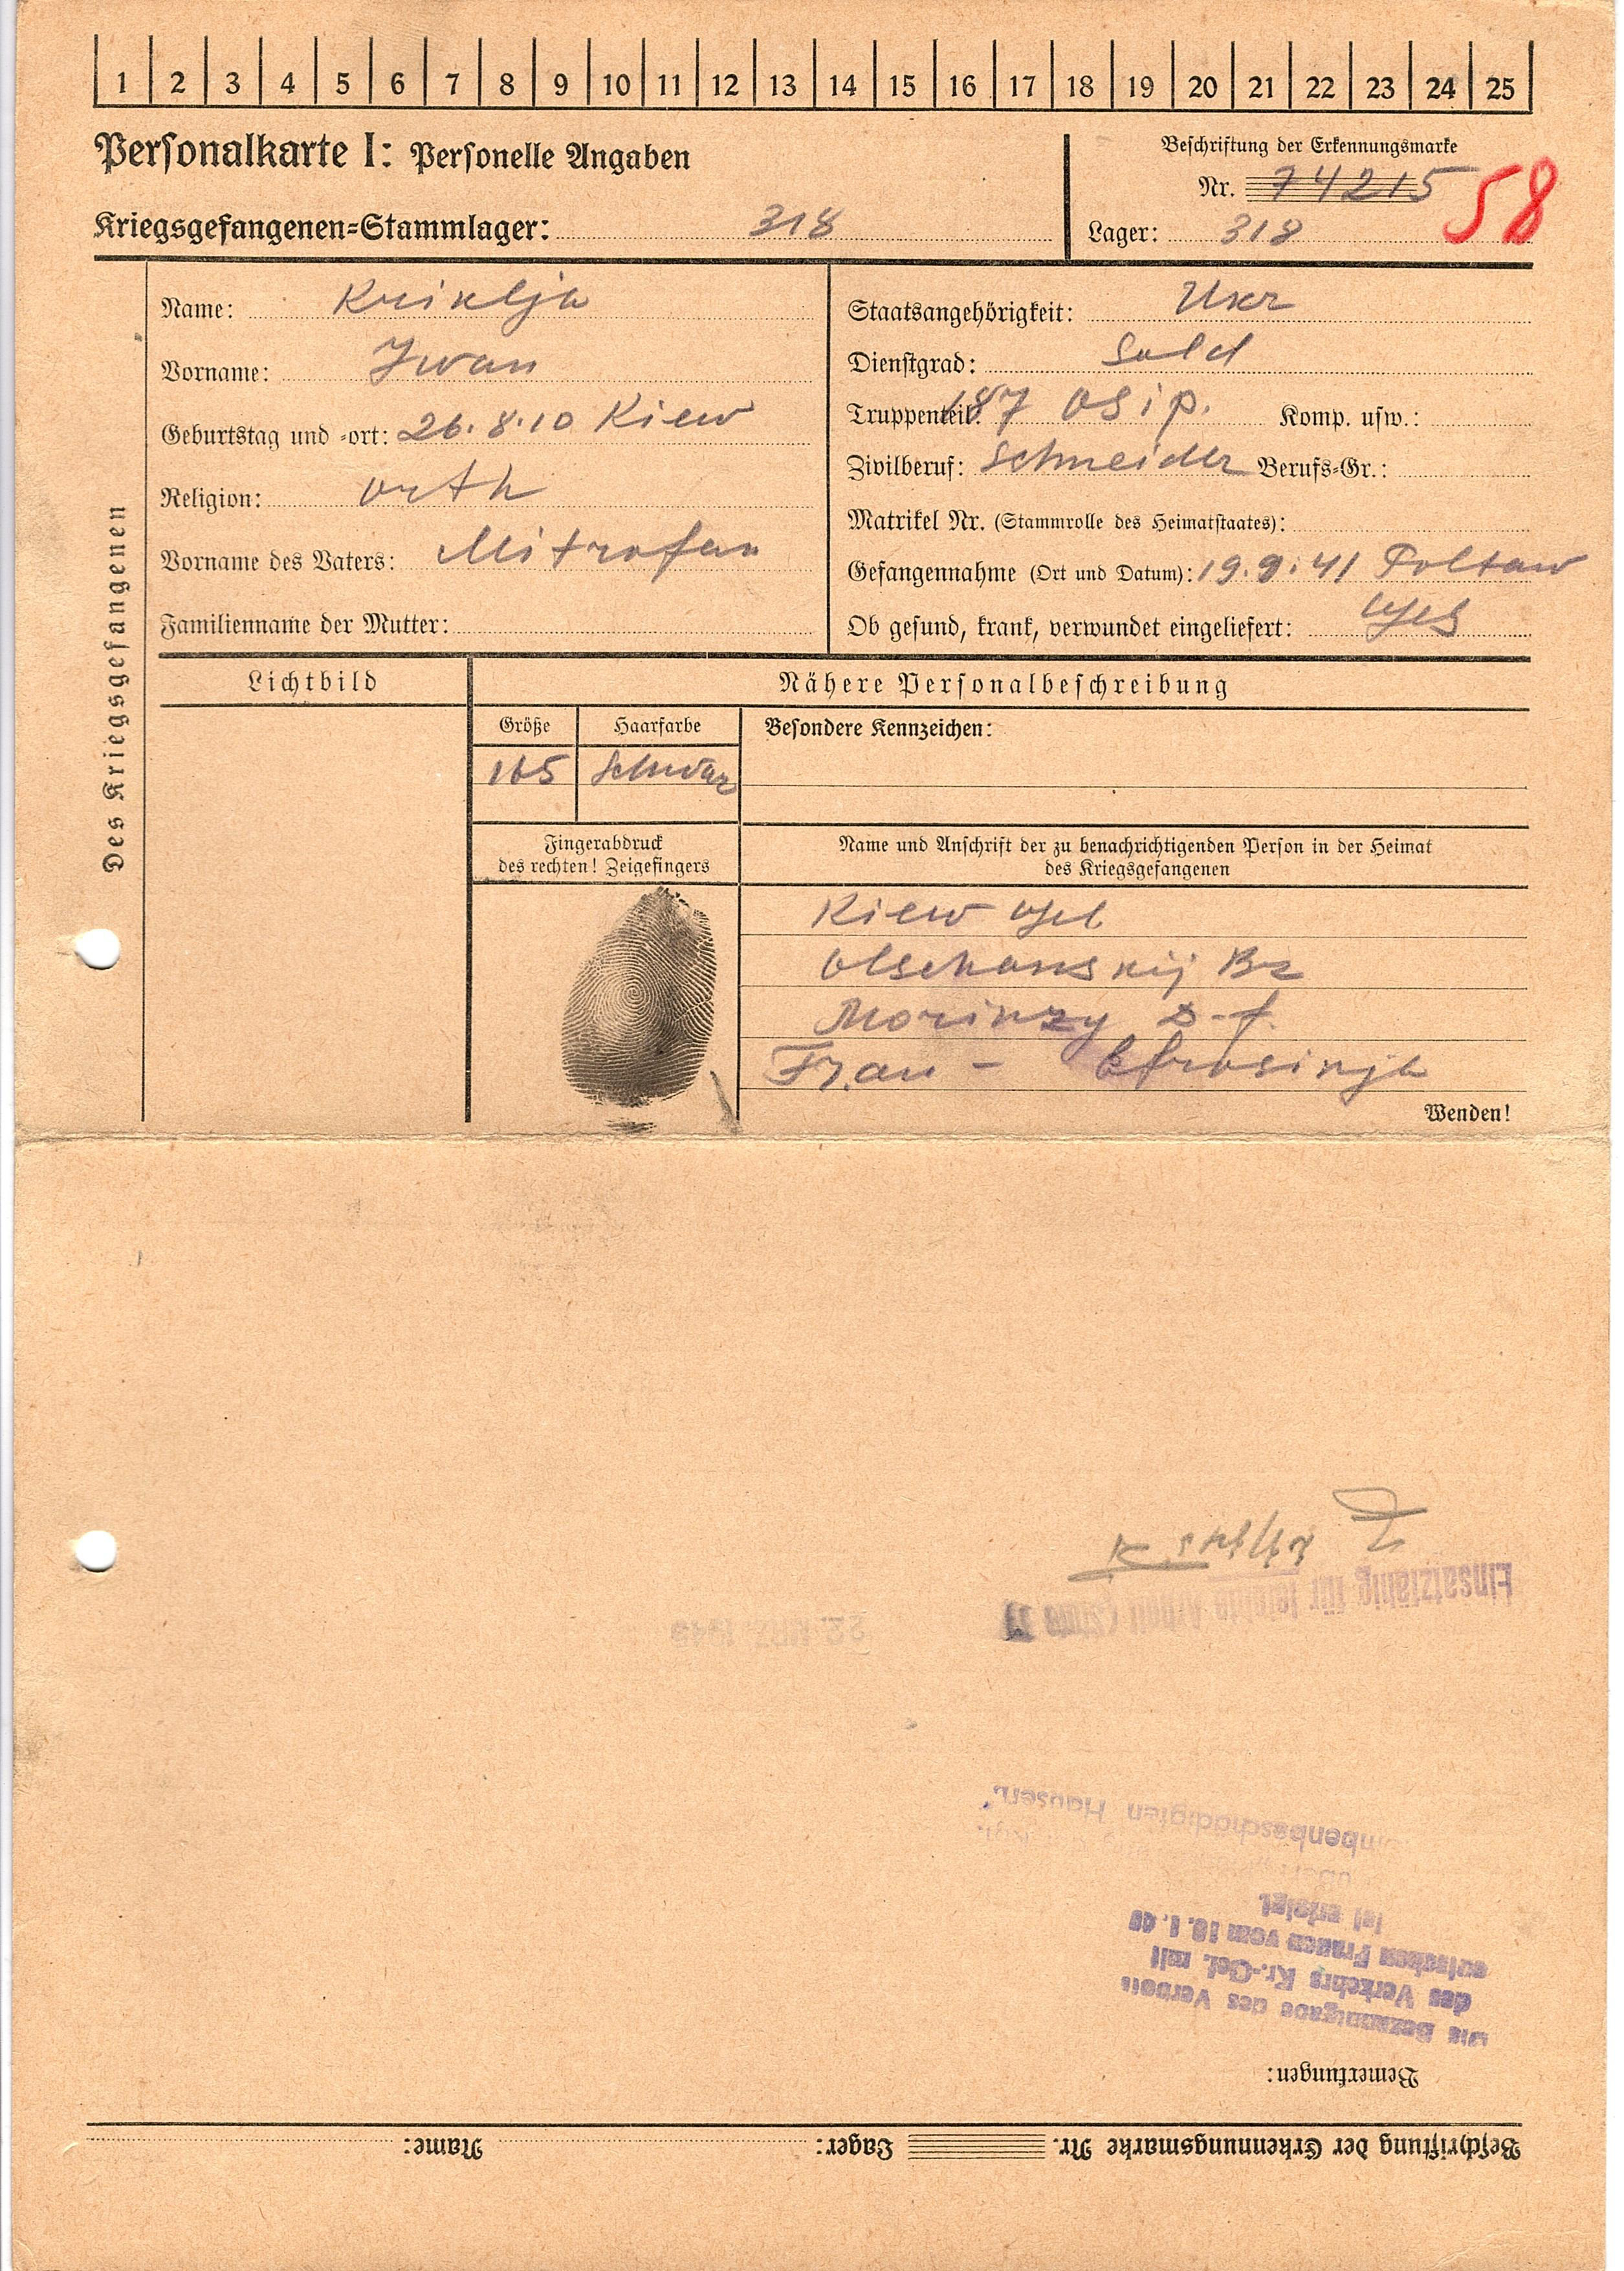 1 2 3 4 5 6 7 8 9 10 11 12 13 14 15 16 17 18 19 20 21 22 23 24 25
Personalkarte I: Personelle Angaben
Beschriftung der Erkennungsmarke
Nr. 74215 58
Kriegsgefangenen-Stammlager: 318
Lager: 318
Des Kriegsgefangenen
Name: Kriklja
Vorname: Iwan
Geburtstag und -ort: 26.8.10 Kiew
Religion: orth
Vorname des Vaters: Mitrofan
Familienname der Mutter:
Staatsangehörigkeit: Ukr
Dienstgrad: Sold
Truppenteil: 187 Komp. usw.:
Zivilberuf: Schneider Berufs-Gr.:
Matrikel Nr. (Stammrolle des Heimatstaates):
Gefangennahme (Ort und Datum): 19.9.41 Poltaw
Ob gesund, krank, verwundet eingeliefert: ges
Lichtbild
Nähere Personalbeschreibung
Größe Haarfarbe
165 Schwarz
Besondere Kennzeichen:
Fingerabdruck
des rechten! Zeigefingers
Name und Anschrift der zu benachrichtigenden Person in der Heimat
des Kriegsgefangenen
Kiew Geb
Olschanskij Bz
Morinzy D-f
Frau - Efrosinja
Wenden!
Beschriftung der Erkennungsmarke Nr. Lager: Name:
Bemerkungen:
Die Bekanntgabe des Verbots
des Verkehrs Kr.-Gef. mit
deutschen Frauen vom 10.1.40
ist erfolgt.
bombenbeschädigten Häusern.
22. MRZ. 1943
Einsatzfähig für leichte Arbeit